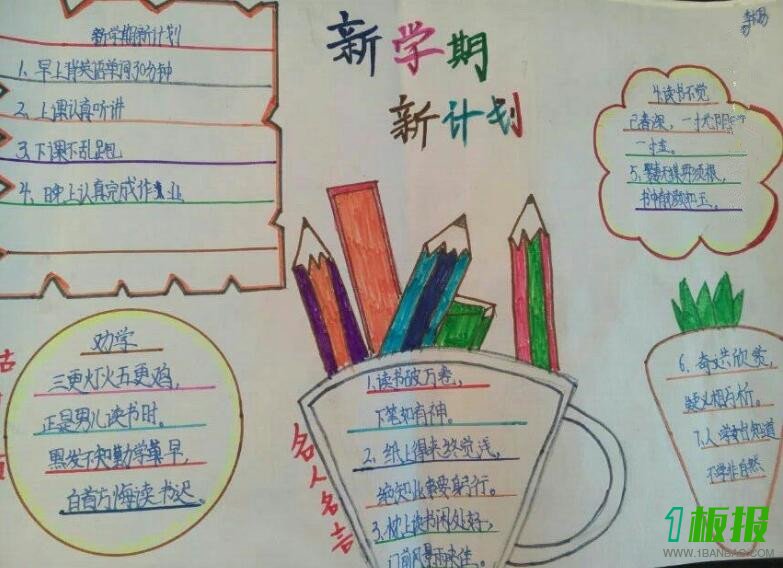 新学期
新计划
新学期新计划
1、早上背英语单词30分钟
2、上课认真听讲
3、下课不乱跑
4、晚上认真完成作业
劝学
三更灯火五更鸡,
正是男儿读书时。
黑发不知勤学早,
白首方悔读书迟。
名人名言
1.读书破万卷,
下笔如有神。
2、纸上得来终觉浅,
绝知此事要躬行。
3、枕上读书闲处好,
门前风景雨来佳。
4.读书不觉
已春深,一寸光阴
一寸金。
5、
书中有
6、奇文共欣赏,
疑义相与析。
7.人学知道
不学非自然
1板报
WWW.1BANBAO.COM